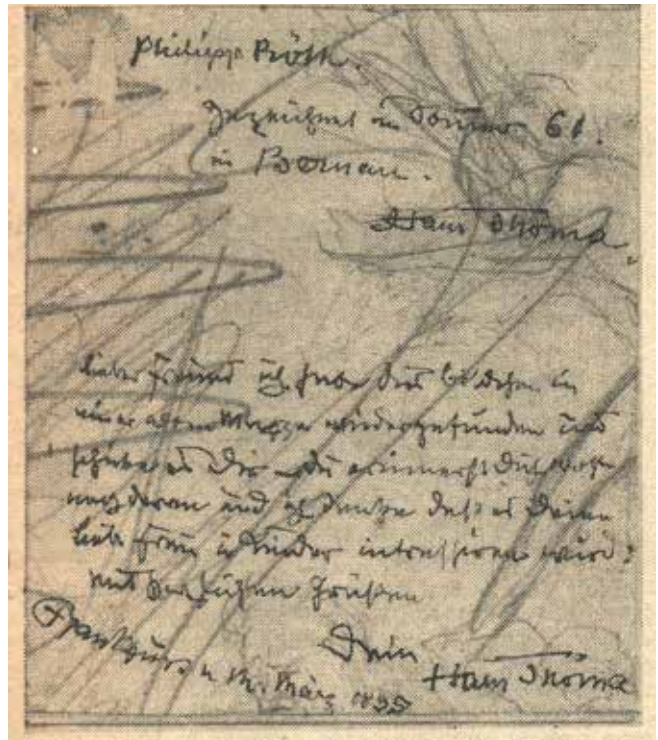 Philipp Röth.
gezeichnet im Sommer 61.
in Bernau.
Hans Thoma.
Lieber Freund ich habe dies Bildchen in
einer alten Mappe wiedergefunden und
schicke es Dir – du erinnerst Dich wohl
noch daran und ich denke daß es Deine
liebe Frau u Kinder intressiren wird:
mit herzlichen Grüßen
Dein
Hans Thoma
Frankfurt a M. März 1895